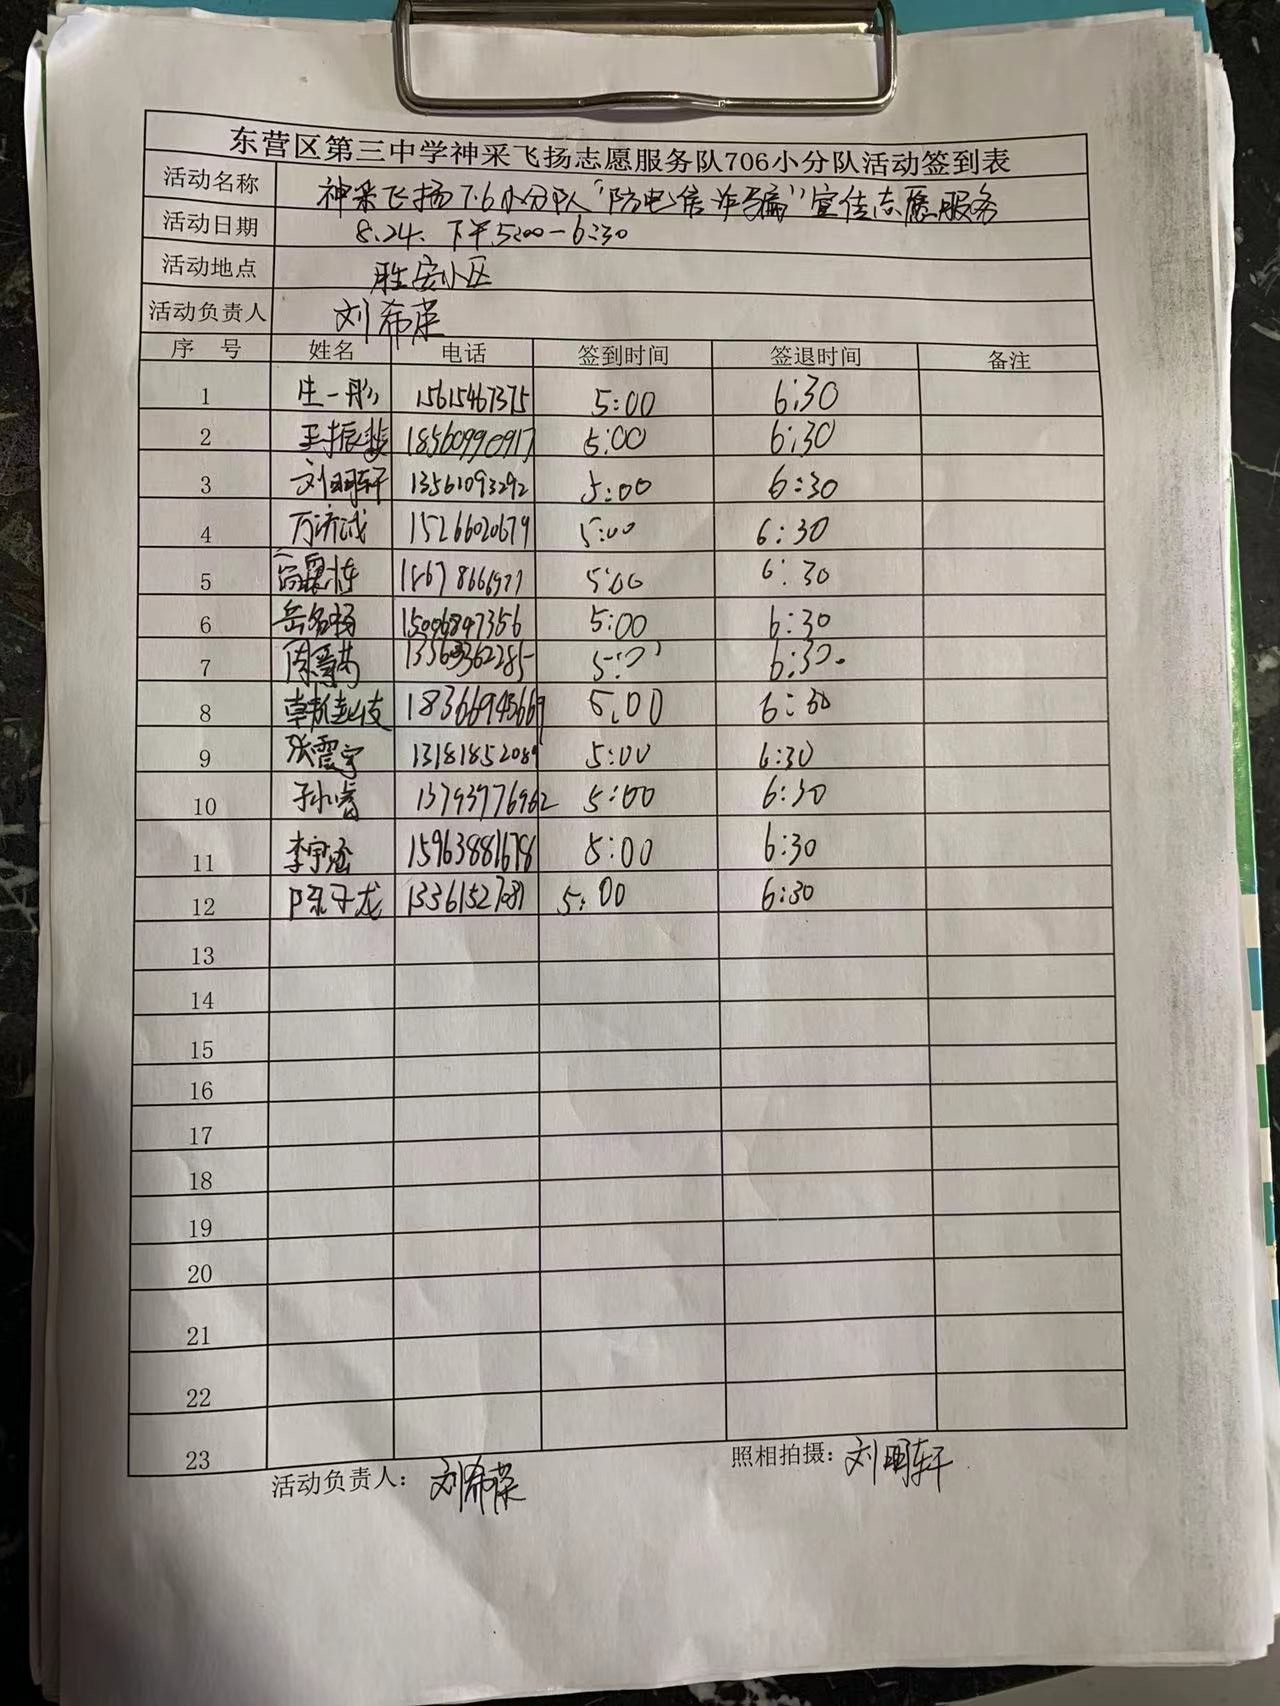 东营区第三中学神采飞扬志愿服务队706小分队活动签到表
活动名称 神采飞扬7.6小分队"防电信诈骗"宣传志愿服务
活动日期 8.24. 下午5:00-6:30
活动地点 胜安小区
活动负责人 刘希荣
序 号 姓名 电话 签到时间 签退时间 备注
1 生一彤 15615467375 5:00 6:30
2 王振 18560990917 5:00 6:30
3 刘明轩 13561093292 5:00 6:30
4 万济诚 15266020679 5:00 6:30
5 5:00 6:30
6 岳名扬 15006897356 5:00 6:30
7 6:30.
8 韩佳 18366945669 5:00 6:30
9 张震宇 13181852089 5:00 6:30
10 孙睿 13793776962 5:00 6:30
11 李宇涵 15963881678 5:00 6:30
12 陈子龙 13361527081 5:00 6:30
13
14
15
16
17
18
19
20
21
22
23
活动负责人: 刘希荣 照相拍摄: 刘明轩